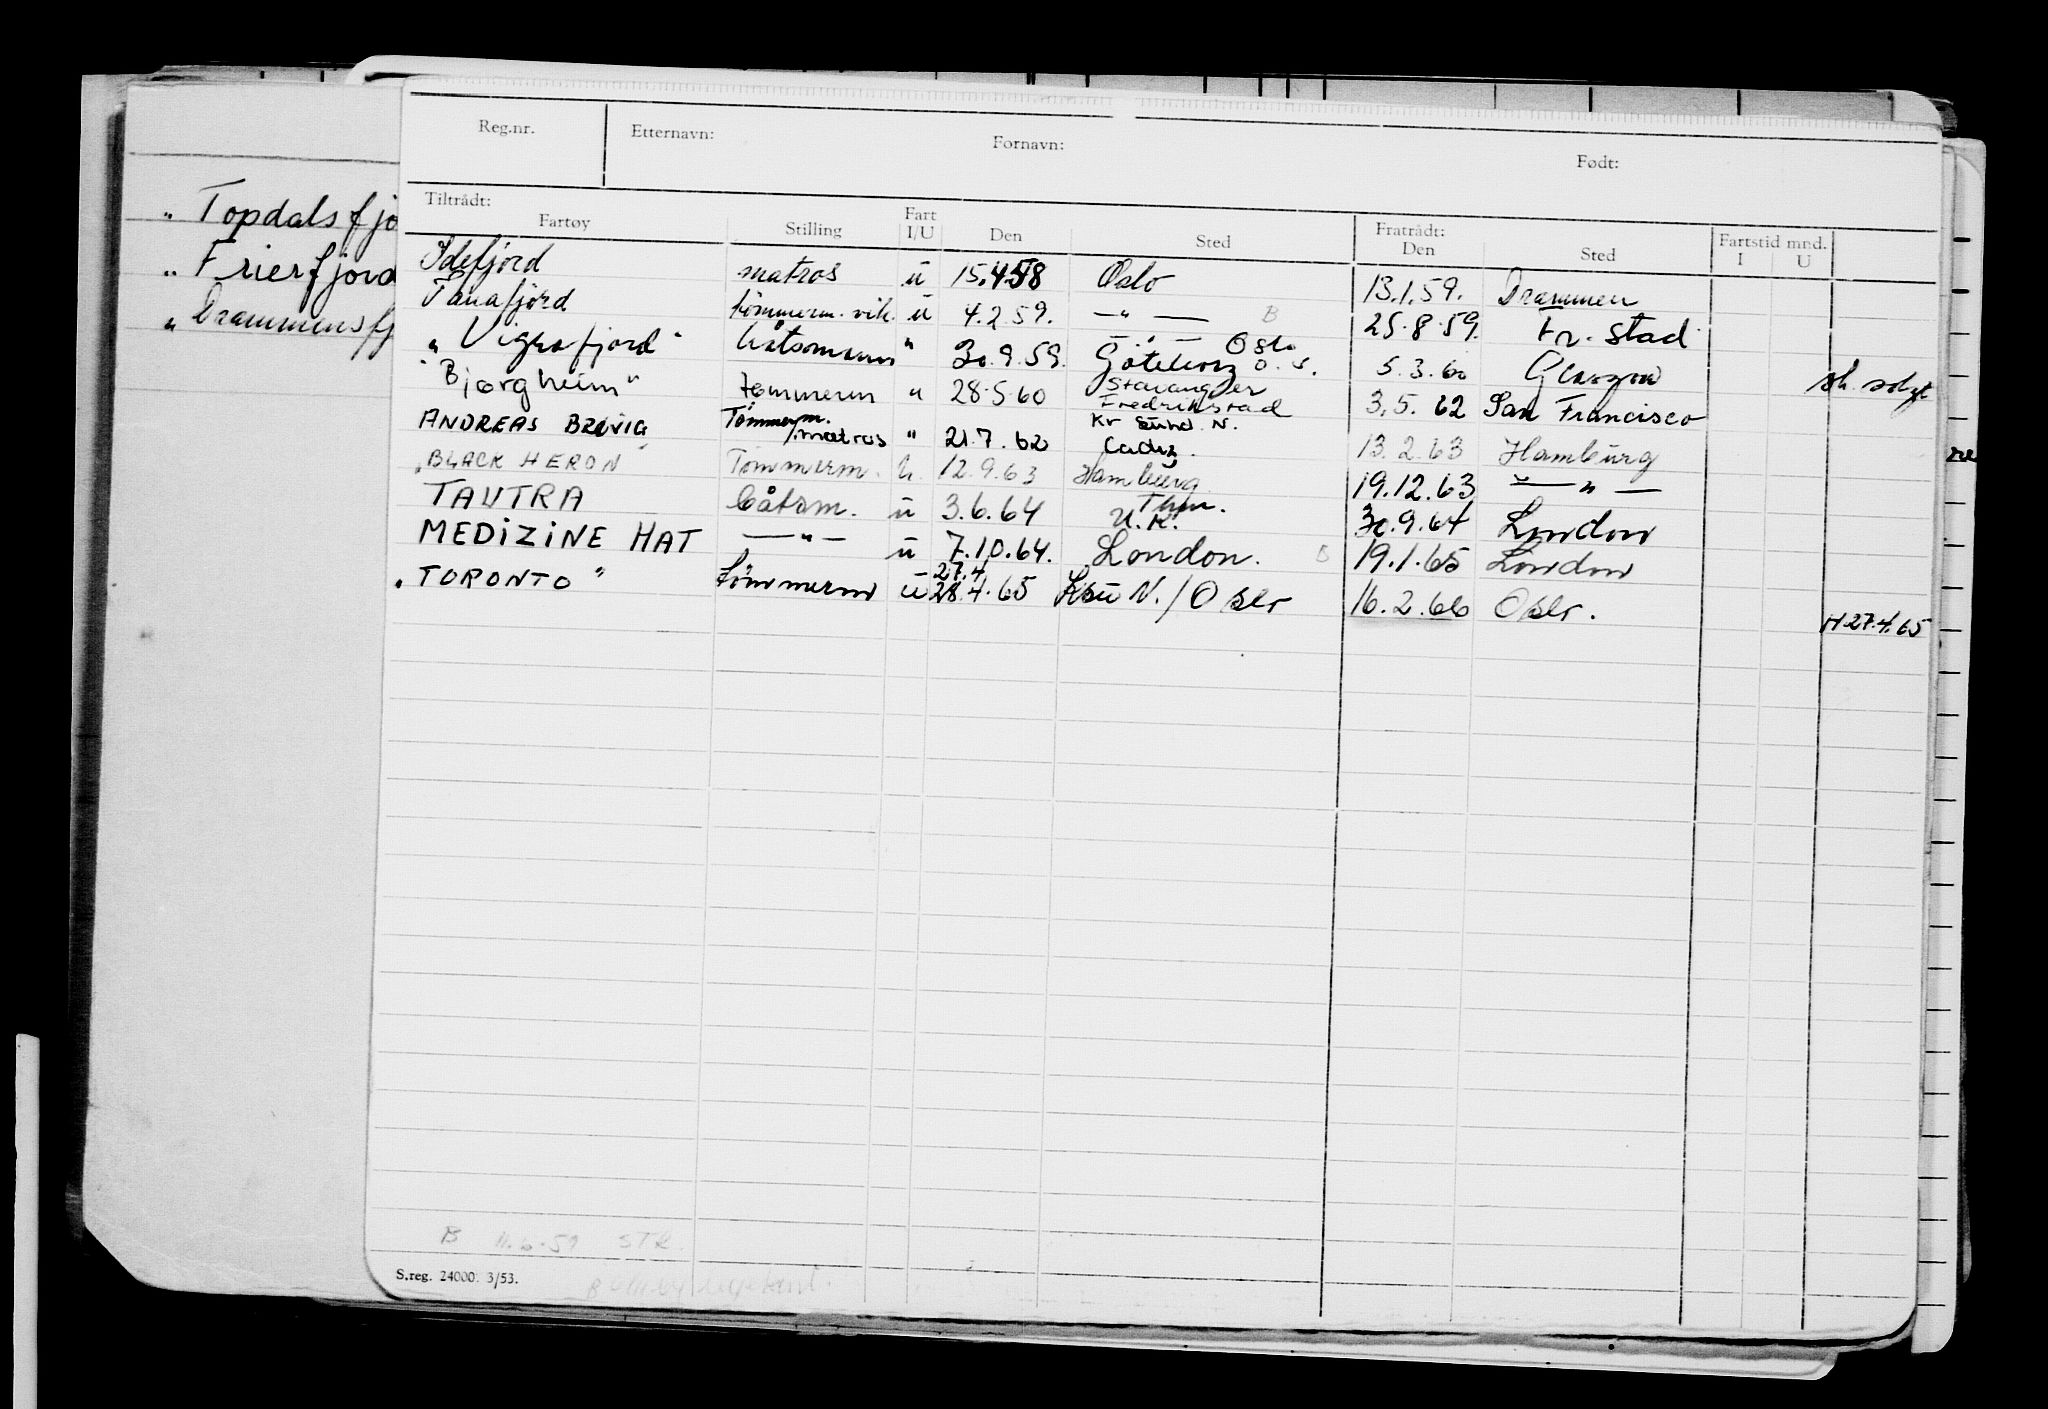 Reg.nr. Etternavn: Fornavn: Født:
Tiltrådt: Fratrådt: Fartstid mnd.
Fartøy Stilling Fart I/U Den Sted Den Sted I U
„ Topdalsfjo
„ Frierfjord
„ Drammensfj
Idefjord matros ü 15.4.58 Oslo 13.1.59. Drammen
Tanafjord tömmerm. vik. ü 4.2.59. —"— B 25.8.59. Fr. stad
—"— Oslo
„ Vigrafjord" båtsmann " 30.9.59. Göteborg Ö. S. 5.3.60 Glasgow sk. solgt
"Bjorgheim" tömmerm " 28.5.60 Stavanger 3.5.62 San Francisco
Fredrikstad
ANDREAS BREVIG Tömmerm./matros " 21.7.62 Kr sund N. 13.2.63 Hamburg
Cadiz.
„BLACK HERON" Tømmerm. u. 12.9.63 Hamburg 19.12.63 —"—
TAUTRA båtsm. ü 3.6.64 U.K. 30.9.64 London
MEDIZINE HAT —"— ü 7.10.64. London. B 19.1.65 London
27.4
„TORONTO" tömmerm ü 28.4.65 Ksu N./Oslo 16.2.66 Oslo. H 27.4.65
B 11.6.59 STR.
S.reg. 24000. 3/53.